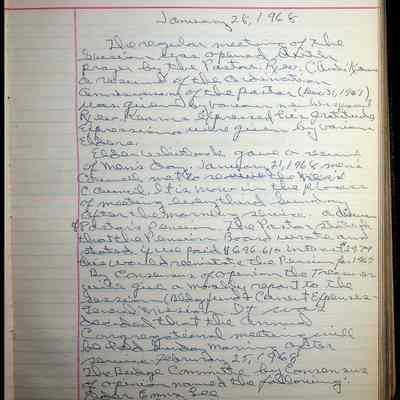 January 28, 1968
The regular meeting of the
Session was opened after
prayer by the Pastor, Rev.
a resume of the Ordination
Anniversary of the Pastor (Dec 31, 1967)
was given by various
Rev. Kearns expressed his gratitude
Expressions were given by various
Elders.
Elder gave a resume
of Men's Day, January 21, 1968 men's
Council the Men's
Council. It is now in the process
of meeting every third Sunday
after the morning service. a
Pastor's Pension. The Pastor
that the Pension Board wrote and
stated if we paid $696.61
one would reinstate the Pension to 1967
By Consensus of opinion the Treasurer
will give a monthly report to the
Session Current Expenses-
General Mission. It was
decided that the Annual
Congregational meeting will
be held Sunday Morning after
service February 25, 1968
The Budget Committee by Consensus
of opinion named the following:
Elder Emma Lee